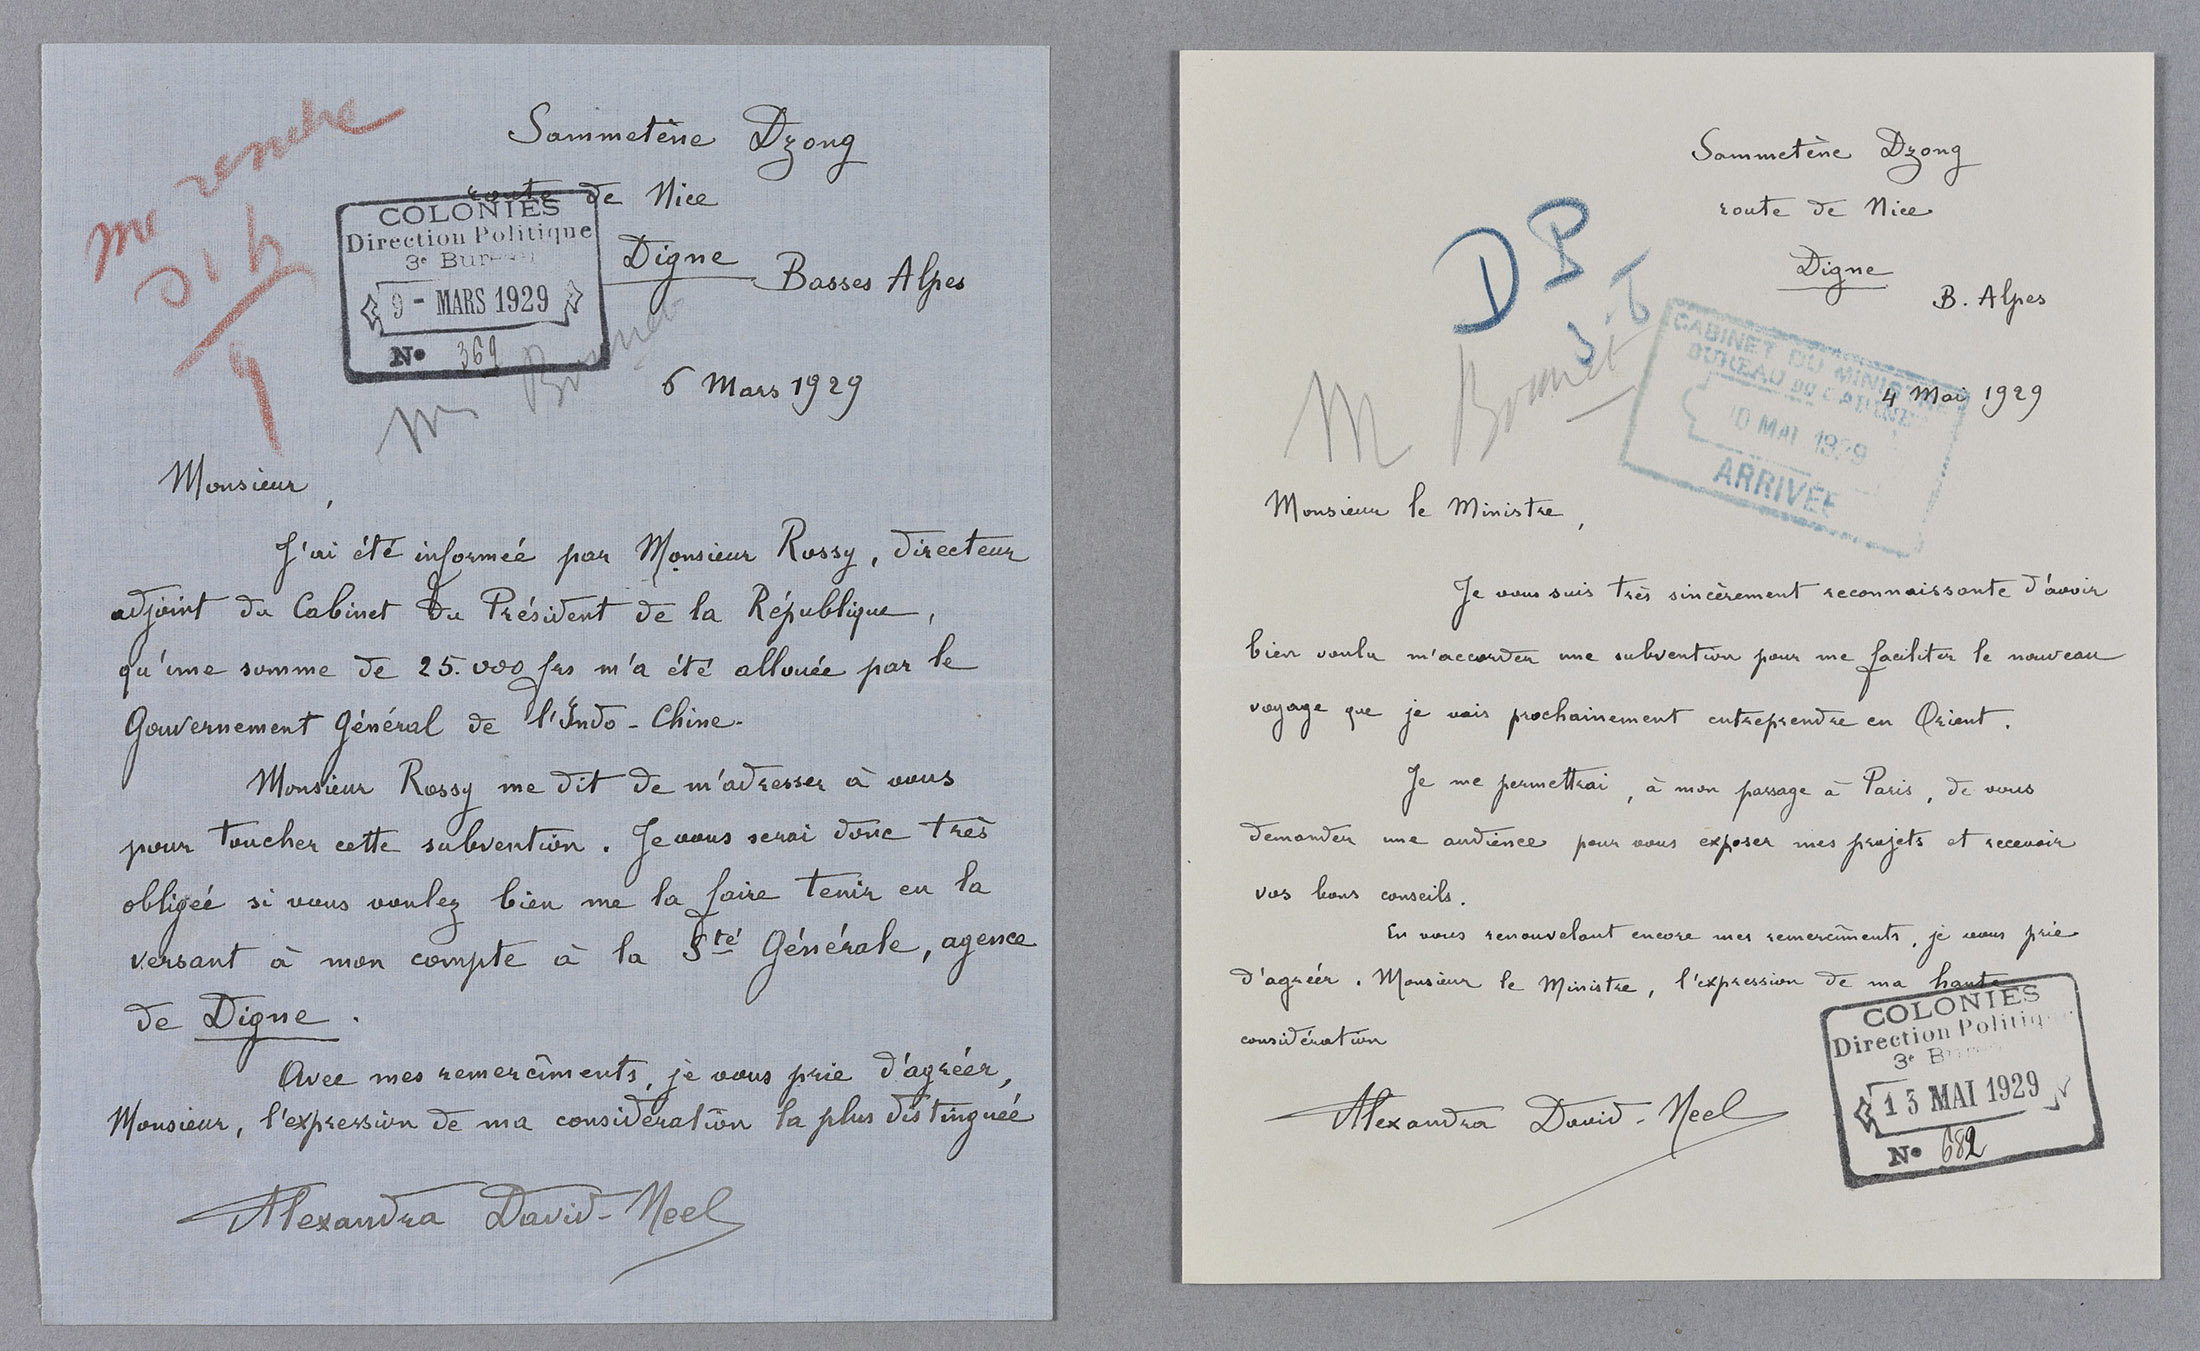 me rendre
Sammetène Dzong
route de Nice
COLONIES
Direction Politique
3e Bureau
9 - MARS 1929
No 369
Digne
Basses Alpes
M Bonnet
6 Mars 1929
Monsieur,
J'ai été informeé par Monsieur Rossy, directeur
adjoint du Cabinet du Président de la République,
qu'une somme de 25.000 frs m'a été allouée par le
Gouvernement Général de l'Indo-Chine.
Monsieur Rossy me dit de m'adresser à vous
pour toucher cette subvention. Je vous serai donc très
obligeé si vous voulez bien me la faire tenir en la
versant à mon compte à la Sté Générale, agence
de Digne.
Avec mes remercîments, je vous prie d'agréér,
Monsieur, l'expression de ma considération la plus distingueé
Alexandra David-Neel
Sammetène Dzong
route de Nice
Digne
B. Alpes
DP
M Bonnet
CABINET DU MINISTRE
BUREAU DU CABINET
10 MAI 1929
ARRIVÉE
4 Mai 1929
Monsieur le Ministre,
Je vous suis très sincèrement reconnaissante d'avoir
bien voulu m'accorder une subvention pour me faciliter le nouveau
voyage que je vais prochainement entreprendre en Orient.
Je me permettrai, à mon passage à Paris, de vous
demander une audience pour vous exposer mes projets et recevoir
vos bons conseils.
En vous renouvelant encore mes remercîments, je vous prie
d'agréér, Monsieur le Ministre, l'expression de ma haute
considération
Alexandra David-Neel
COLONIES
Direction Politique
3e Bureau
13 MAI 1929
No 682